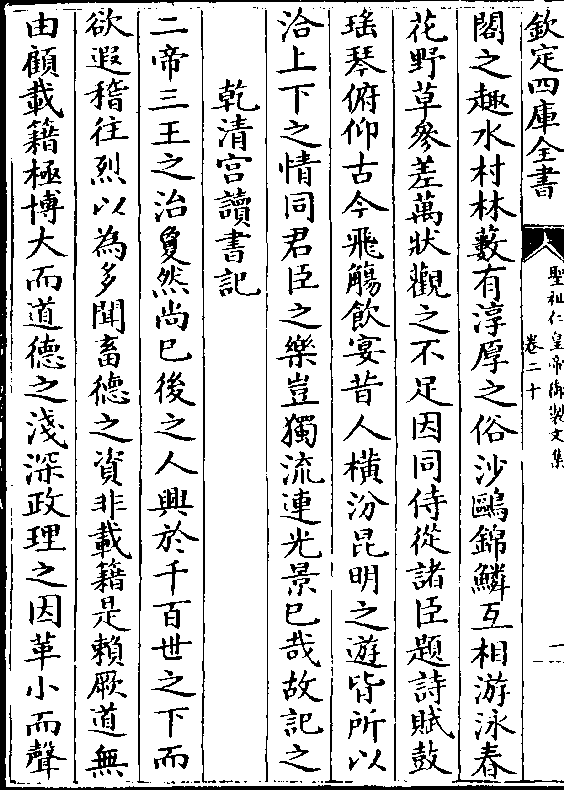 欽定四庫全書
聖祖仁皇帝御製文集
卷二十
一
閣之趣水村林藪有淳厚之俗沙鷗錦鱗互相游泳春
花野草參差萬狀觀之不足因同侍從諸臣題詩賦鼓
瑤琴俯仰古今飛觴飲宴昔人橫汾昆明之遊皆所以
洽上下之情同君臣之樂豈獨流連光景已哉故記之
乾清宫讀書記
二帝三王之治敻然尚已後之人興於千百世之下而
欲遐稽往烈以為多聞畜德之資非載籍是賴厥道無
由顧載籍極博大而道德之淺深政理之因革小而聲